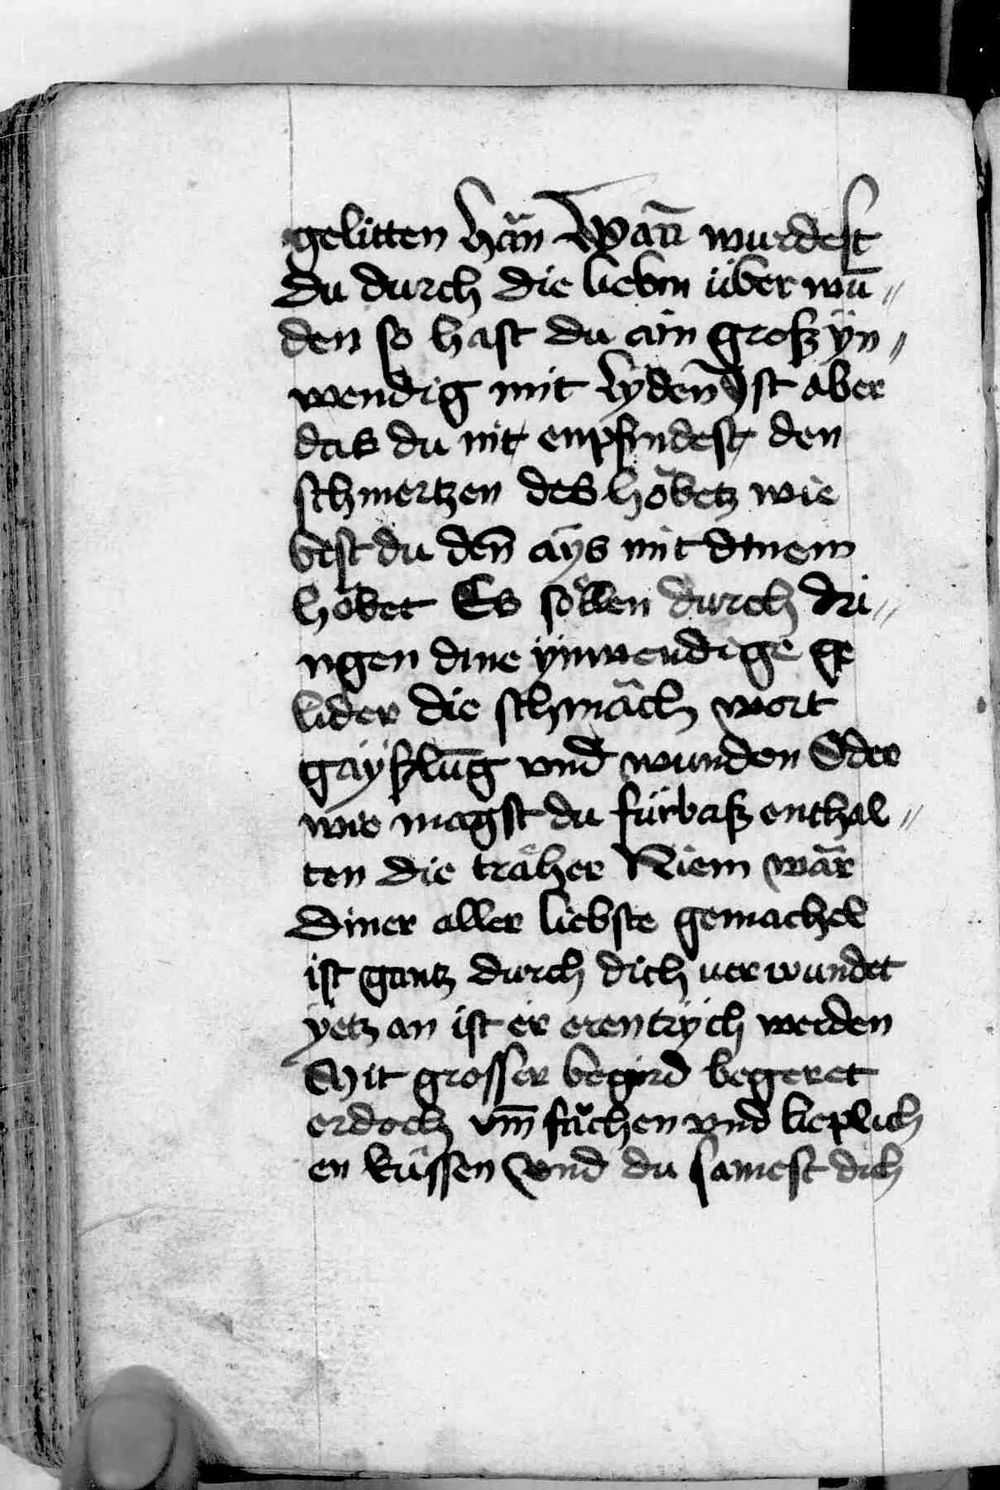 gelitten hän Wañ wurdest
du durch die liebin über wū〃
den so hast du ain groß ÿn〃
wendig mit lÿden Ist aber
das du nit enpfindest den
schmertzen des höbetz wie
best du deñ aÿs mit dinem
höbet Es söllen durch dri〃
ngen dine ÿnwendige ge
lider die schmäch wort
gaÿßlūg vnd wunden Oder
wie magst du fürbaß enthal〃
ten die träher Niem wăr
Diner aller liebste gemachel
ist gantz durch dich uerwundet
ÿetz an ist er erentrÿch werden
Mit grosser begird begeret
er doch vm̄ fǎchen vnd lieplich
en küssen vnd du samest dich